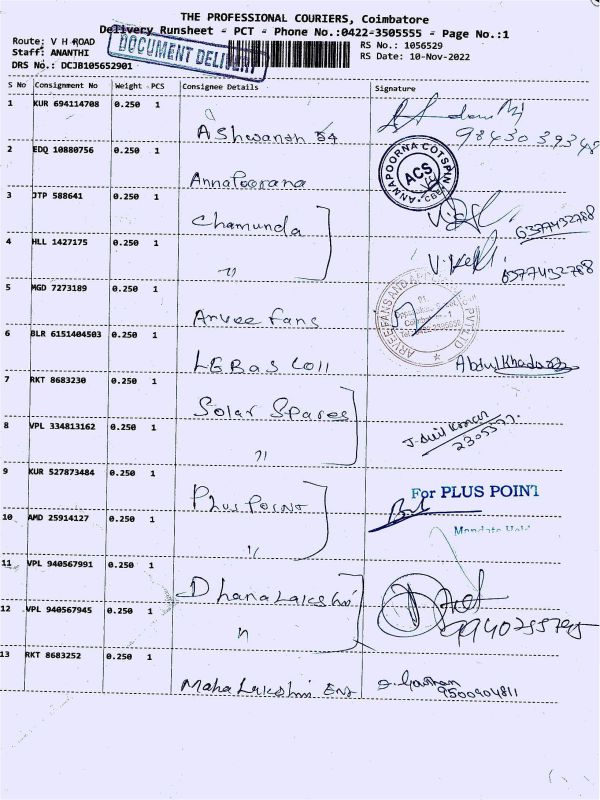 THE PROFESSIONAL COURIERS, Coimbatore
Delivery Runsheet - PCT - Phone No.:0422-3505555 - Page No.:1
Route: V H ROAD
Staff: ANANTHI
DRS No.: DCJB105652901
DOCUMENT DELIVERY
RS No.: 1056529
RS Date: 10-Nov-2022
S No Consignment No Weight PCS Consignee Details Signature
1 KUR 694114708 0.250 1 Ashwanth 54
2 EDQ 10880756 0.250 1 Annapoorana
ANNAPOORNA COTSPIN
ACS
3 JTP 588641 0.250 1 Chamunda
6377432788
4 HLL 1427175 0.250 1 "
6377432788
5 MGD 7273189 0.250 1 Arvee Fans
6 BLR 6151404503 0.250 1 LGBAS Coll Abdul Khadar
7 RKT 8683230 0.250 1 Solar Spares
8 VPL 334813162 0.250 1 "
9 KUR 527873484 0.250 1 Plus Point
For PLUS POINT
10 AMD 25914127 0.250 1 "
11 VPL 940567991 0.250 1 Dhanalakshmi
12 VPL 940567945 0.250 1 "
13 RKT 8683252 0.250 1 Mahalakshmi Ent
9500904811